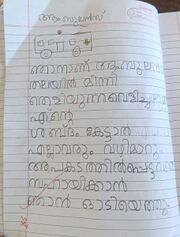 ആംബുലൻസ്
ഞാനാണ് ആംബുലൻസ്
തലയിൽ മിന്നി
തെളിയുന്ന വെളിച്ചം
എന്റെ
ശബ്ദം കേട്ടാൽ
എല്ലാവരും വഴിമാറും
അപകടത്തിൽപ്പെട്ടവരെ
സഹായിക്കാൻ
ഞാൻ ഓടിയെത്തും